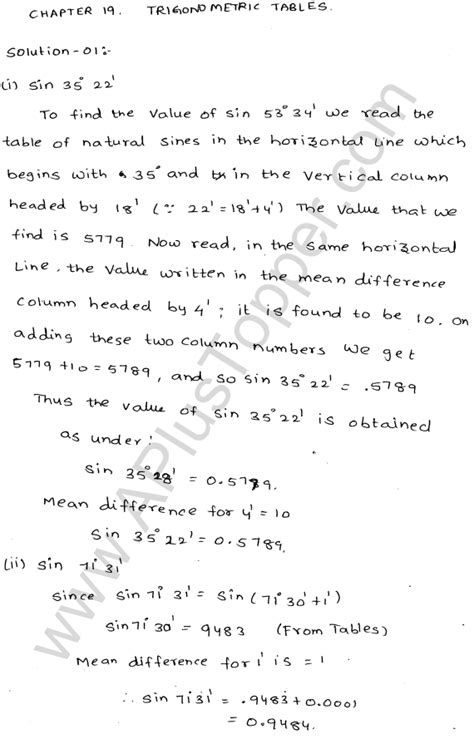 CHAPTER 19. TRIGONOMETRIC TABLES.
Solution-01:-
(i) sin 35° 22'
To find the value of sin 53° 34' we read the
table of natural sines in the horizontal line which
begins with 35° and in the vertical column
headed by 18' (∵ 22' = 18'+4') The value that we
find is 5779. Now read, in the same horizontal
Line, the value written in the mean difference
column headed by 4'; it is found to be 10. on
adding these two column numbers we get
5779 +10 = 5789, and so sin 35° 22' = .5789
Thus the value of sin 35° 22' is obtained
as under:
sin 35° 28' = 0.5779.
Mean difference for 4' = 10
sin 35° 22' = 0.5789.
(ii) sin 71° 31'
since sin 71° 31' = sin (71° 30' + 1')
sin 71° 30' = 9483 (From Tables)
Mean difference for 1' is = 1
∴ sin 71° 31' = .9483 + 0.0001
= 0.9484.
www.APlusTopper.com